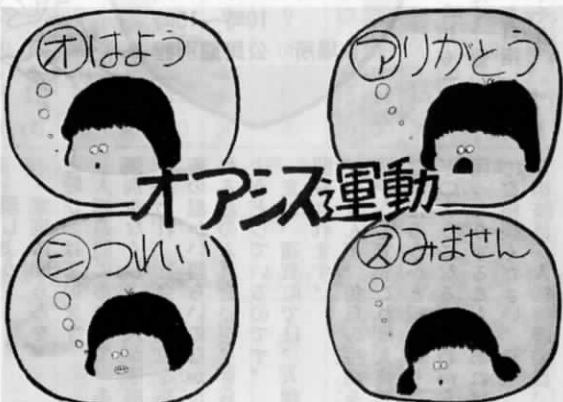 オはよう
アりがとう
オアシス運動
シつれい
スみません